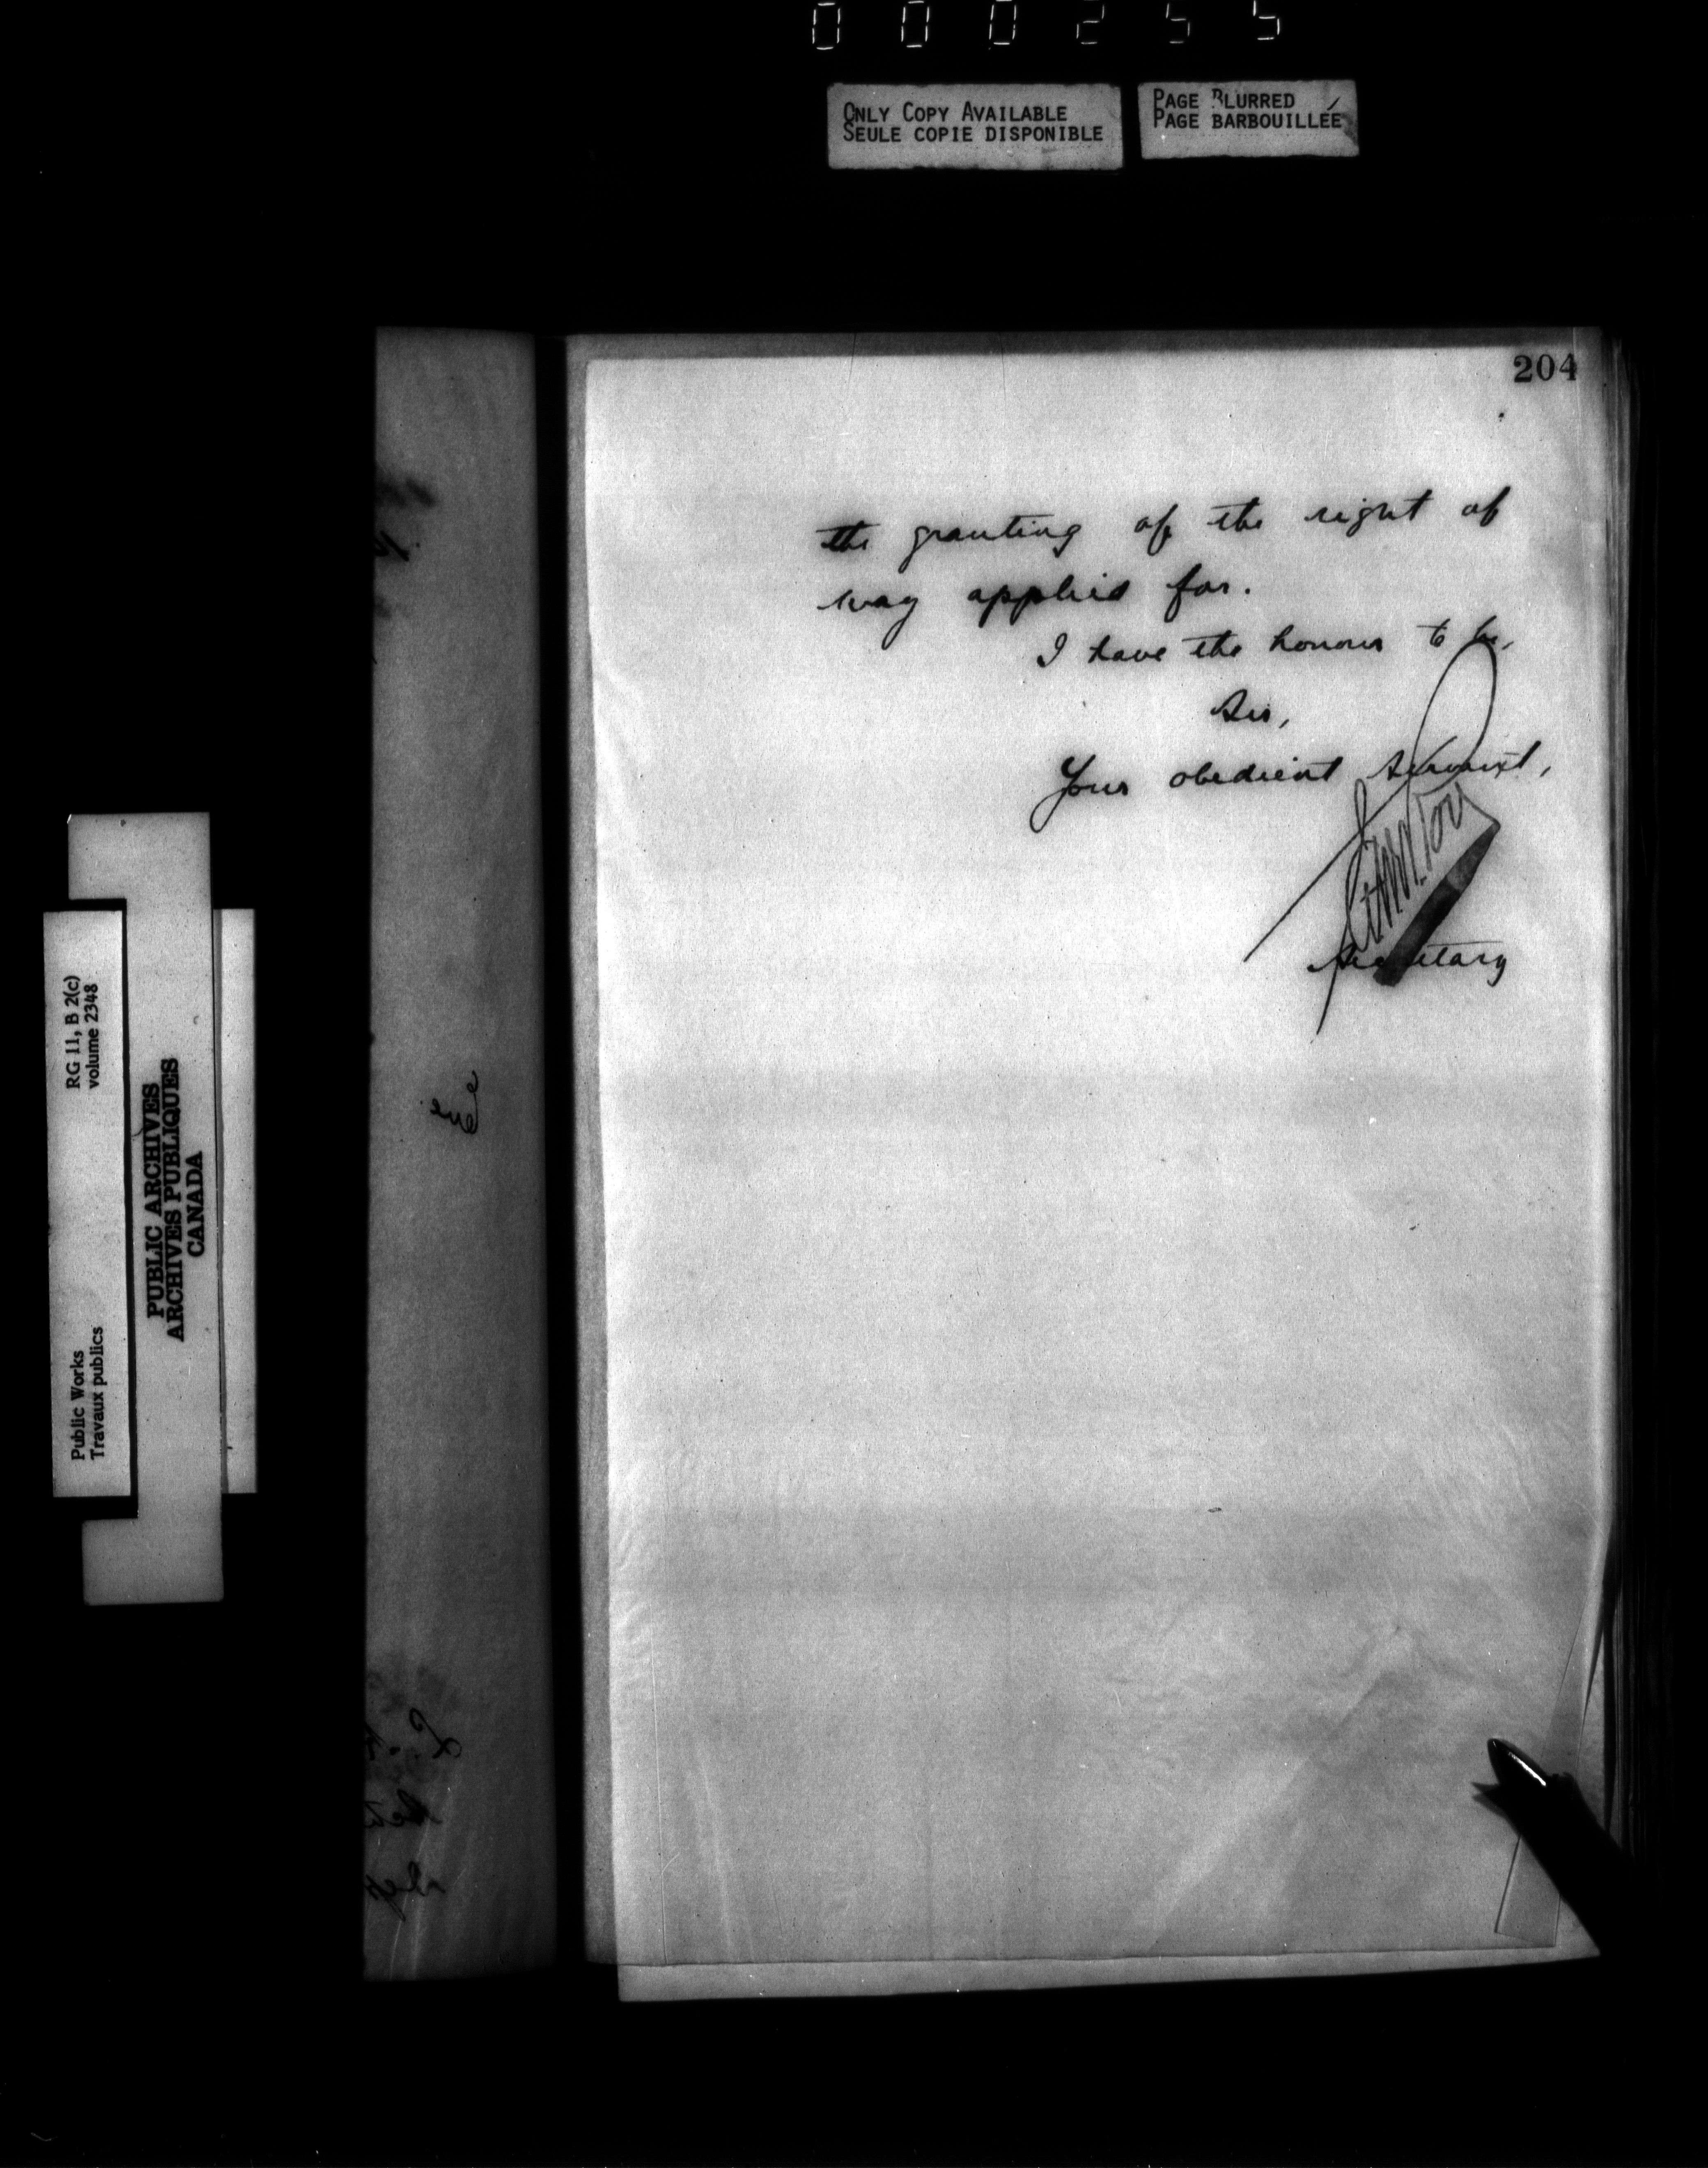 000255
ONLY COPY AVAILABLE
SEULE COPIE DISPONIBLE
PAGE BLURRED
PAGE BARBOUILLÉE
204
the granting of the right of
way applied for.
I have the honour to be,
Sir,
Your obedient servant,
Secretary
RG 11, B 2(c)
volume 2348
Public Works
Travaux publics
PUBLIC ARCHIVES
ARCHIVES PUBLIQUES
CANADA